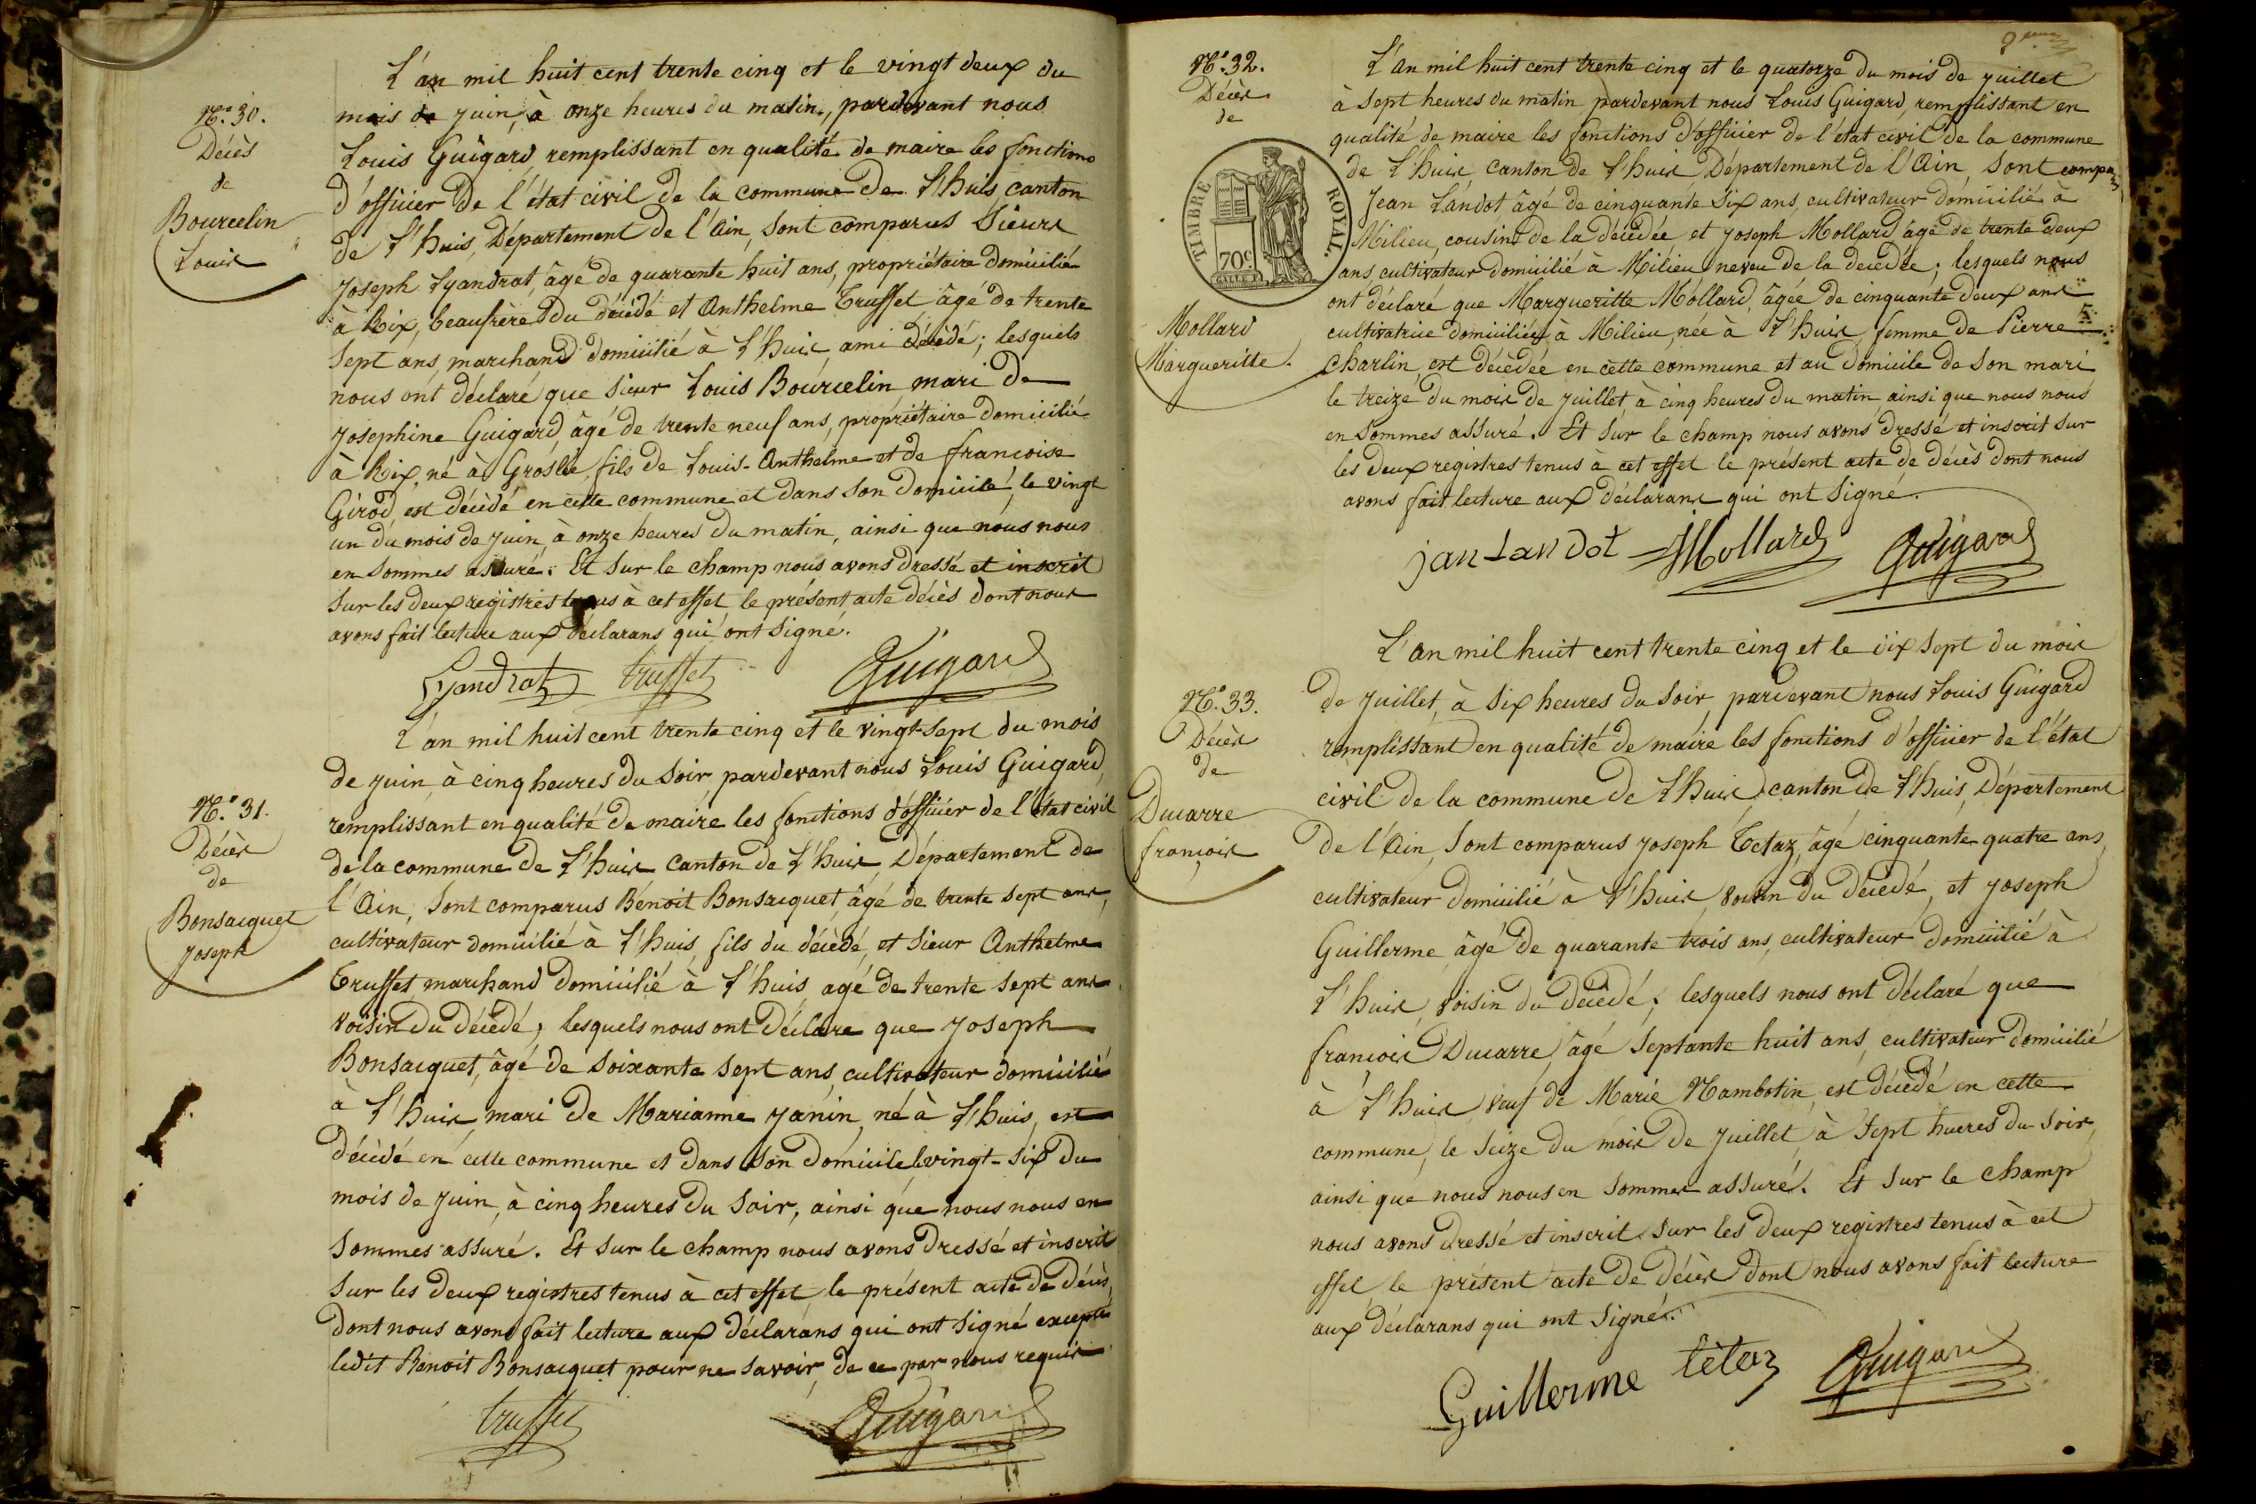 N.o 30.
Décès
de
Bourcelin
Louis
L'an mil huit cent trente cinq et le vingt deux du
mois de juin, à onze heures du matin, pardevant nous
Louis Guigard remplissant en qualité de maire les fonctions
d'officier de l'état civil de la commune de L'huis canton
de L'huis, Département de l'Ain, sont comparus Sieurs
Joseph Lyandrat, âgé de quarante huit ans, propriétaire domicilié
à Rix, beaufrère du décédé et Anthelme Truffet âgé de trente
sept ans, marchand domicilié à L'huis ami décédé; lesquels
nous ont déclaré que sieur Louis Bourcelin, mari de
Josephine Guigard, âgé de trente neuf ans, propriétaire domicilié
à Rix, né à Groslée, fils de Louis-Anthelme et de francoise
Girod, est décédé en cette commune et dans son domicile, le vingt
un du mois de juin, à onze heures du matin, ainsi que nous nous
en sommes assuré. Et sur le champ nous avons dressé et inscrit
sur les deux registres tenus à cet effet, le présent acte décès dont nous
avons fait lecture aux déclarans qui ont signé.
Lyandrat truffet Guigard
N.o 31.
Décès
de
Bonsacquet
Joseph
L'an mil huit cent trente cinq et le vingt-sept du mois
de juin, à cinq heures du soir, pardevant nous Louis Guigard,
remplissant en qualité de maire les fonctions d'officier de l'état civil
de la commune de L'huis canton de L'huis, Département de
l'Ain, sont comparus Bénoit Bonsacquet, âgé de trente sept ans,
cultivateur domicilié à L'huis, fils du décédé, et sieur Anthelme
Truffet, marchand domicilié à L'huis agé de trente sept ans
voisin du décédé; lesquels nous ont déclare que Joseph
Bonsacquet, âgé de soixante sept ans, cultivateur domicilié
à L'huis, mari de Marianne Janin, né à L'huis, est
décédé en cette commune et dans son domicile le vingt-six du
mois de juin, à cinq heures du soir, ainsi que nous nous en
sommes assuré. Et sur le champ nous avons dressé et inscrit
sur les deux registres tenus à cet effet, le présent acte de décès,
dont nous avons fait lecture aux déclarans qui ont signé excepté
ledit Benoit Bonsacquet pour ne savoir, de ce par nous requis
truffet Guigard
N.o 32.
Décès
de
TIMBRE ROYAL.
70c
Mollard
Margueritte.
L'an mil huit cent trente cinq et le quatorze du mois de juillet
à sept heures du matin pardevant nous Louis Guigard, remplissant en
qualité de maire les fonctions d'officier de l'état civil de la commune
de L'huis, canton de L'huis Département de l'Ain, sont compa
Jean Landot, âgé de cinquante six ans, cultivateur domicilié à
Milieu, cousin de la décédée, et Joseph Mollard âgé de trente deux
ans cultivateur domicilié à Milieu neveu de la decedée; lesquels nous
ont déclaré que Margueritte Mollard, âgée de cinquante deux ans
cultivatrice domiciliée à Milieu, née à L'huis, femme de Pierre
Charlin, est décédée en cette commune et au domicile de son mari
le treize du mois de juillet, à cinq heures du matin ainsi que nous nous
en sommes assuré. Et sur le champ nous avons dressé et inscrit sur
les deux registres tenus à cet effet le présent acte de décès dont nous
avons fait lecture aux déclarans qui ont signé.
jan Landot Mollard Guigard
N.o 33.
Décès
de
Ducarre
françois
L'an mil huit cent trente cinq et le dix sept du mois
de juillet, à six heures du soir, pardevant nous Louis Guigard
remplissant en qualité de maire les fonctions d'officier de l'état
civil de la commune de L'huis, canton de L'huis, Département
de l'Ain, sont comparus Joseph Tétaz, âgé cinquante quatre ans,
cultivateur domicilié à L'huis, voisin du décédé, et Joseph
Guillerme, âgé de quarante trois ans, cultivateur domicilié à
L'huis, voisin du décédé; lesquels nous ont déclaré que
françois Ducarre, âgé septante huit ans, cultivateur domicilié
à L'huis, veuf de Marie Nambotin, est décédé en cette
commune, le seize du mois de juillet, à sept hueres du soir,
ainsi que nous nous en sommes assuré. Et sur le champ
nous avons dressé et inscrit sur les deux registres tenus à cet
effet le présent acte de décès dont nous avons fait lecture
aux déclarans qui ont signé.
Guillerme tétaz Guigard